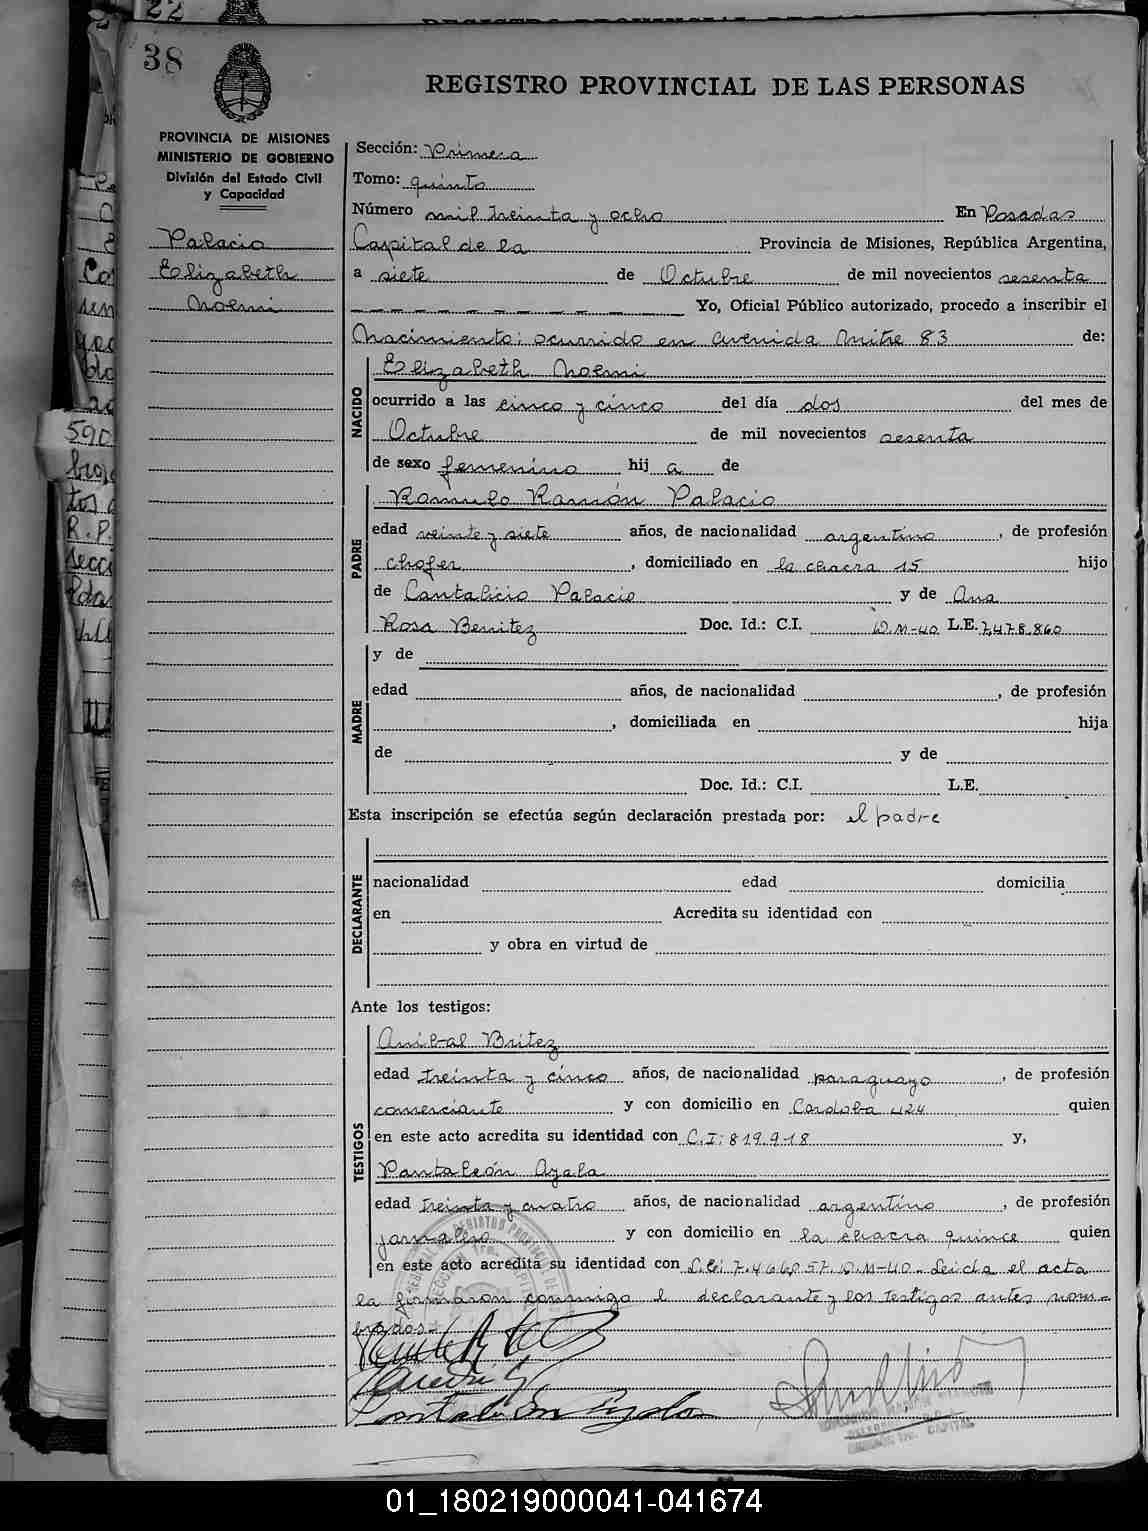 38
REGISTRO PROVINCIAL DE LAS PERSONAS
PROVINCIA DE MISIONES
MINISTERIO DE GOBIERNO
División del Estado Civil
y Capacidad
Palacio
Elizabeth
Noemi
Sección: Primera
Tomo: quinto
Número mil treinta y ocho En Posadas
Capital de la Provincia de Misiones, República Argentina,
a siete de Octubre de mil novecientos sesenta
Yo, Oficial Público autorizado, procedo a inscribir el
Nacimiento; ocurrido en avenida Mitre 83 de:
NACIDO
Elizabeth Noemi
ocurrido a las cinco y cinco del día dos del mes de
Octubre de mil novecientos sesenta
de sexo femenino hij a de
PADRE
Romulo Ramón Palacio
edad veinte y siete años, de nacionalidad argentino, de profesión
chofer, domiciliado en la chacra 15 hijo
de Cantalicio Palacio y de Ana
Rosa Benitez Doc. Id.: C.I. D.M-40 L.E. 7.478.860
MADRE
y de
edad años, de nacionalidad , de profesión
, domiciliada en hija
de y de
Doc. Id.: C.I. L.E.
Esta inscripción se efectúa según declaración prestada por: el padre
DECLARANTE
nacionalidad edad domicilia
en Acredita su identidad con
y obra en virtud de
Ante los testigos:
TESTIGOS
Anibal Britez
edad treinta y cinco años, de nacionalidad paraguayo, de profesión
comerciante y con domicilio en Cordoba 424 quien
en este acto acredita su identidad con C.I: 819.918 y,
Pantaleón Ayala
edad treinta y cuatro años, de nacionalidad argentino, de profesión
jornalero y con domicilio en la chacra quince quien
en este acto acredita su identidad con D.M-40. Leida el acta
la firmaron conmigo el declarante y los testigos antes nom-
brados.
01_180219000041-041674